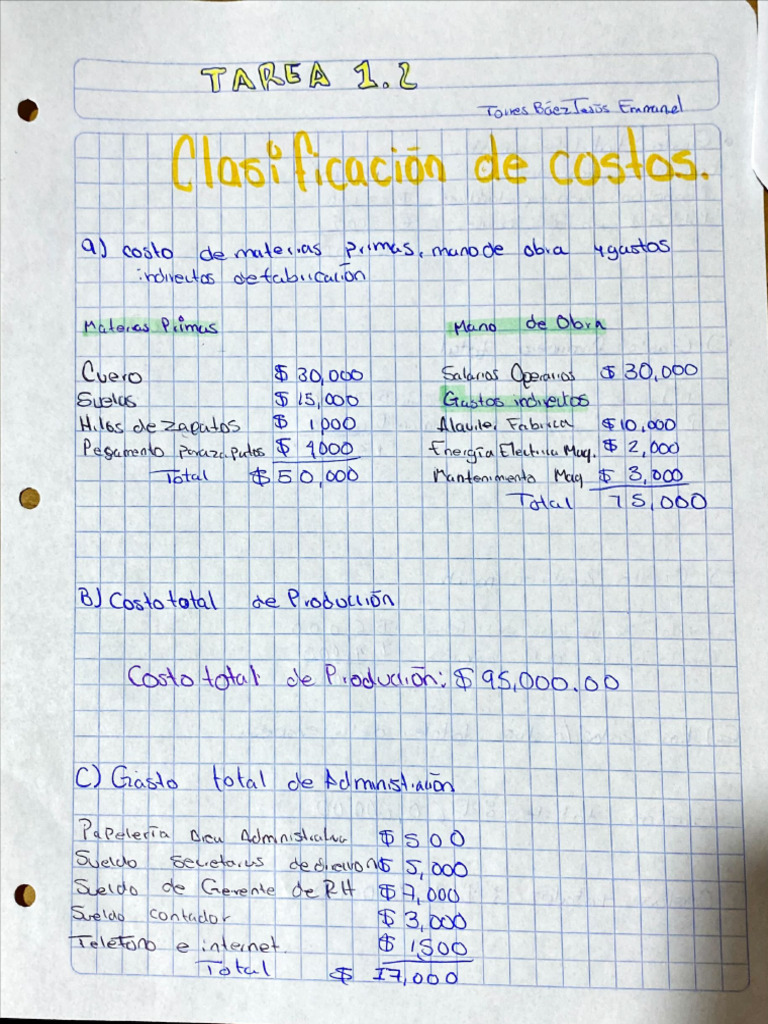 TAREA 1.2
Torres Báez Jesús Emmanuel
Clasificación de costos.
a) costo de materias primas, mano de obra y gastos
indirectos de fabricación
Materias Primas
Cuero $ 30,000
Suelas $ 15,000
Hilos de zapatos $ 1,000
Pegamento para zapatos $ 4000
Total $ 50,000
Mano de Obra
Salarios Operarios $ 30,000
Gastos indirectos
Alquiler Fabrica $ 10,000
Energía Electrica Maq. $ 2,000
Mantenimento Maq $ 3,000
Total 15,000
B) Costo total de Producción
Costo total de Producción: $ 95,000.00
C) Gasto total de Administración
Papelería Area Administrativa $ 500
Sueldo Secretarias de direccion $ 5,000
Sueldo de Gerente de RH $ 7,000
Sueldo contador $ 3,000
Telefono e internet. $ 1,500
Total $ 17,000